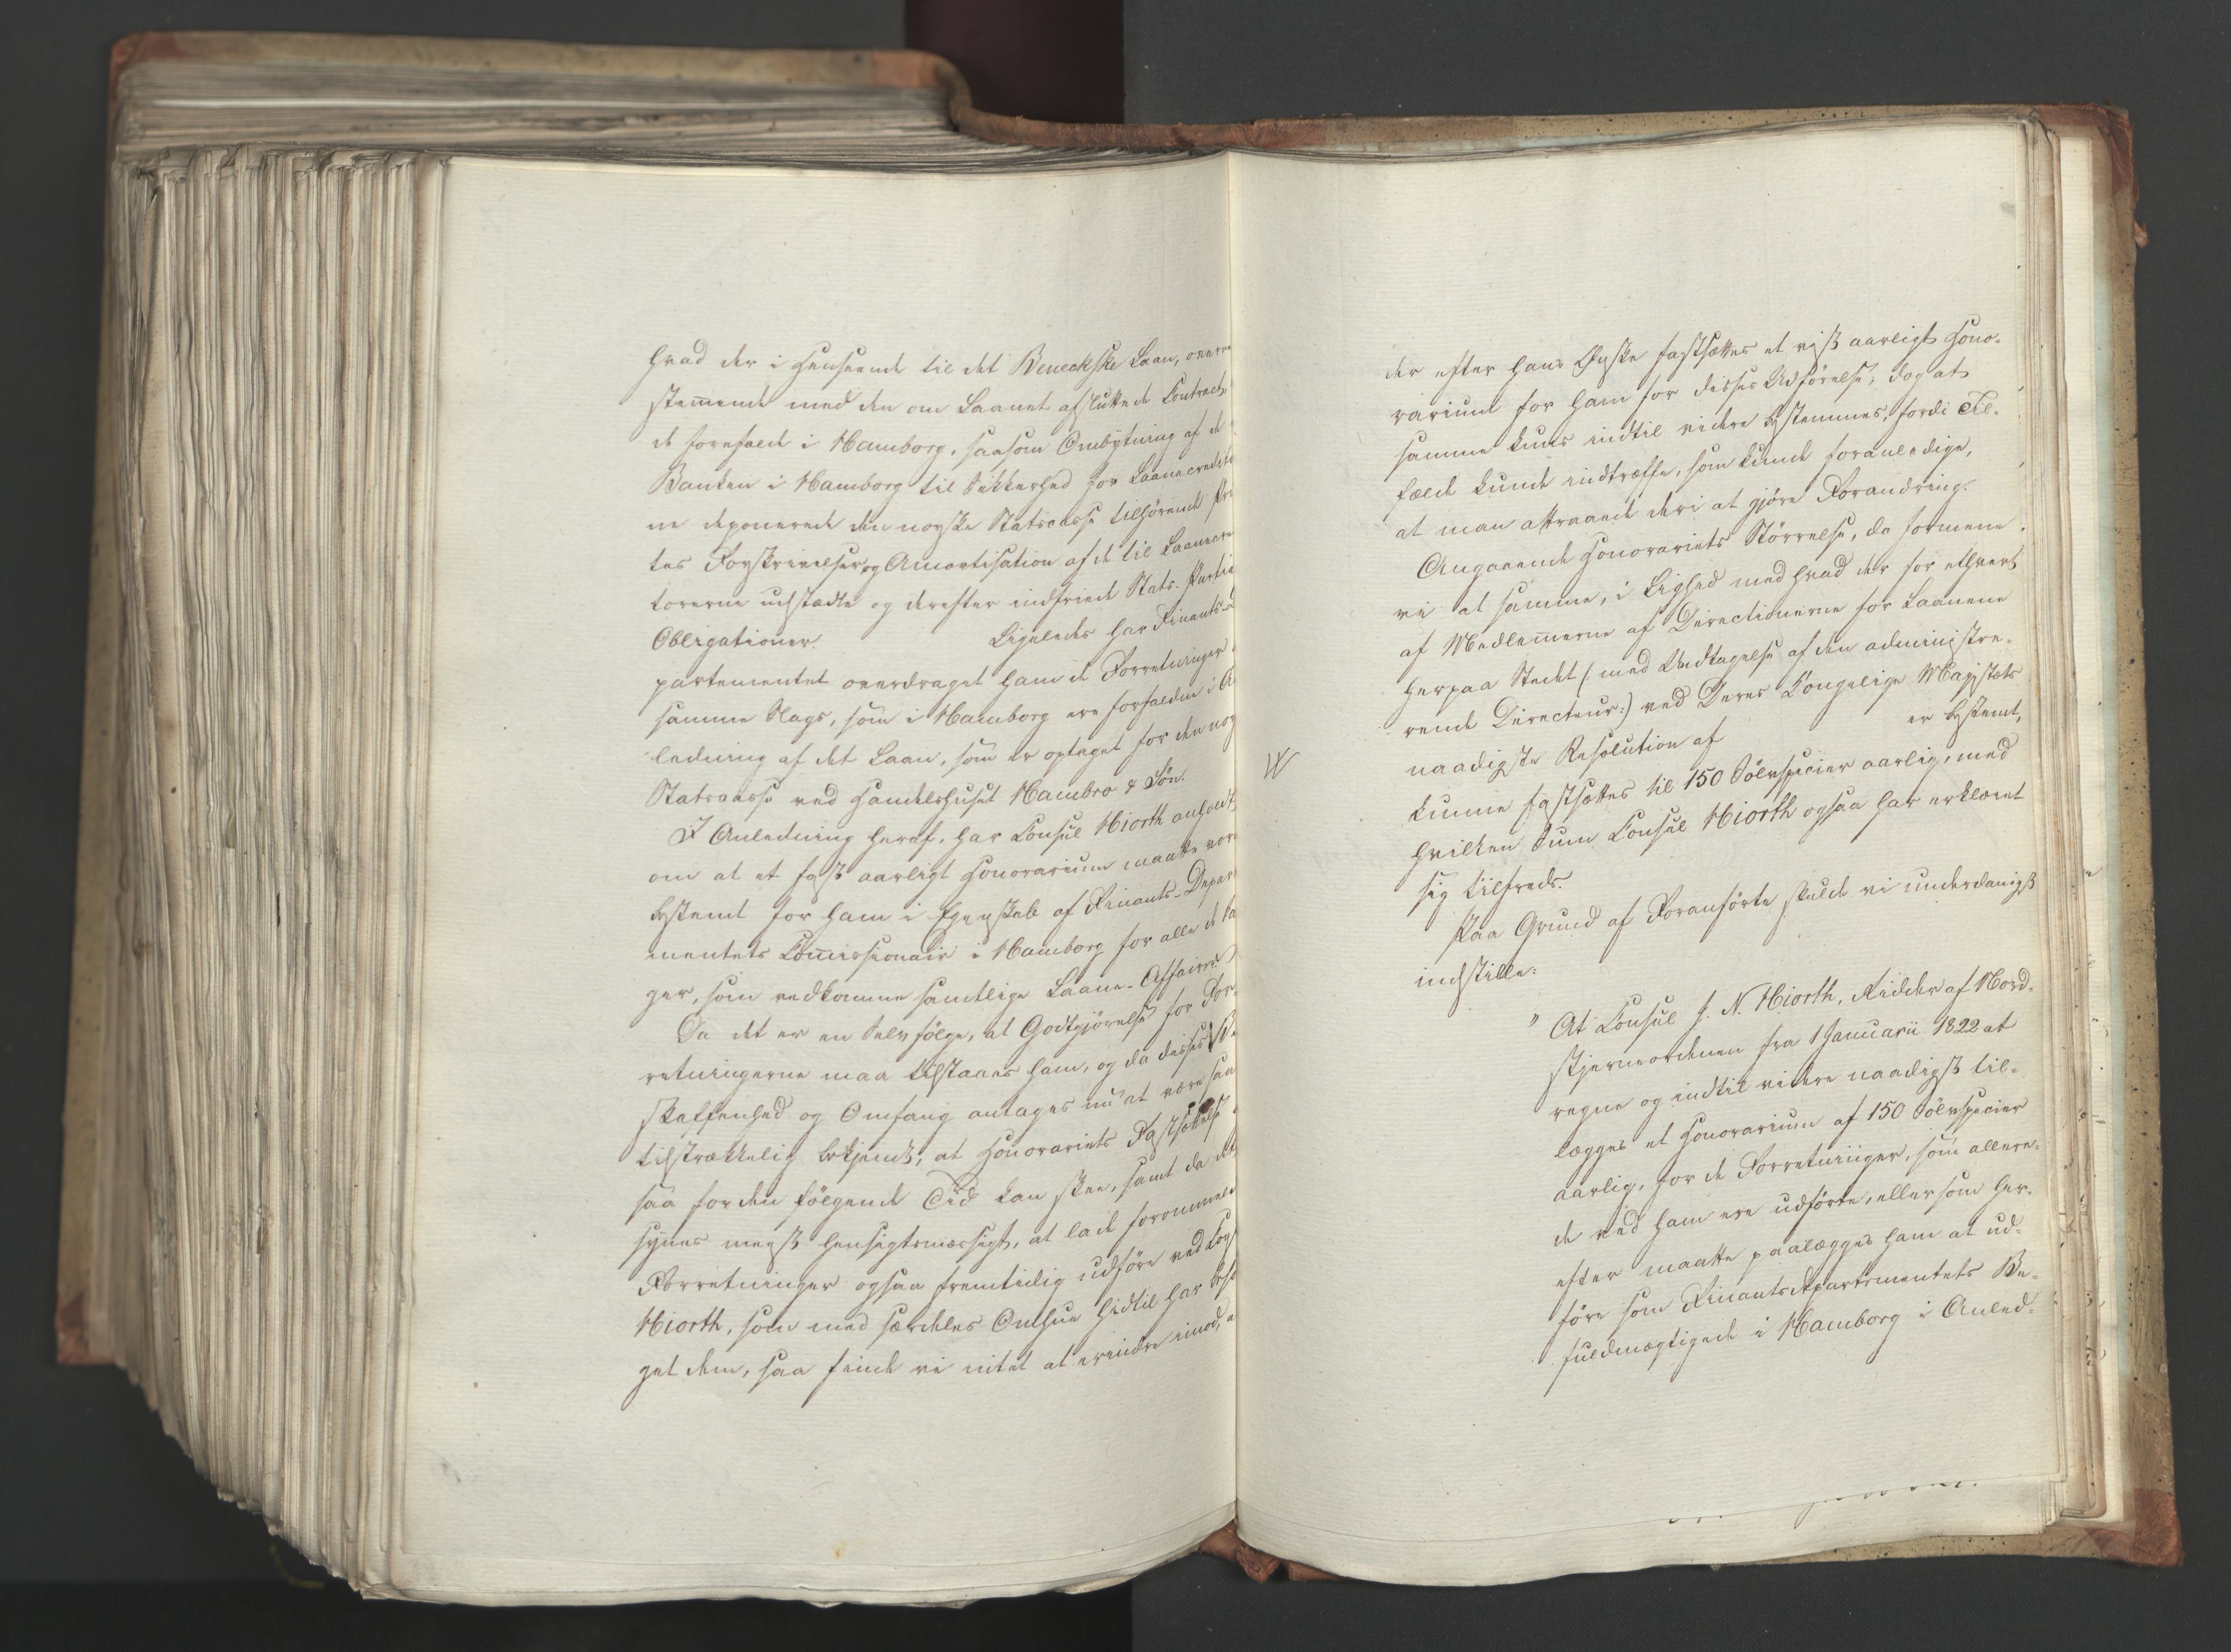 hvad der i Henseende til det Beneckske Laan, overe
stemmende med den om Laanet afsluttede Contract
de forefaldt i Hamborg, saasom Ombytning af de
Banken i Hamborg til Sikkerhed for Laanecredito
ne deponerede den norske Statscasse tilhørende Pri
tes Forskrivelser og Amortisation af de til Laanecre
torerne udstædte og derefter indfriede Stats-Partia
Obligationer. Ligeledes har Finants-D
partementet overdraget ham de Forretninger
samme Slags, som i Hamborg ere forfaldne i A
ledning af det Laan, som er optaget for den nor
Statscasse ved Handelshuset Hambro & Søn.
I Anledning heraf, har Consul Hiorth anholdt
om at et fast aarligt Honorarium maatte vor
bestemt for ham i Egenskab af Finants-Depar
mentets Commissionair i Hamborg for alle de Sa
ger, som vedkomme samtlige Laane-Affairer.
Da det er en Selvfølge, at Godtgjørelse for For-
retningerne maa tilstaaes ham, og da disses Be
skaffenhed og Omfang antages nu at være saa
tilstrækkelig bekjendt, at Honorariets Fastsættelse
saa for den følgende Tid kan skee, samt da det
synes meest hensigtsmæssigt, at lade forommeld
Forretninger ogsaa fremtidig udføre ved Cons
Hiorth, som med særdeles Omhue hidtil har besø
get dem, saa finde vi intet at erindre imod, a
der efter hans Ønske fastsættes et vist aarligt Hono-
rarium for ham for disses Udførelse; dog at
samme kuns indtil videre bestemmes, fordi Til-
fælde kunde indtræffe, som kunde foranledige,
at man attraaede deri at gjøre Forandring.
Angaaende Honorariets Størrelse, da formene
vi at samme, i Lighed med hvad der for ethvert
af Medlemmerne af Directionerne for Laanene
herpaa Stedet (: med Undtagelse af den administre-
rende Directeur:) ved Deres Kongelige Majestæts
naadigste Resolution af er bestemt,
kunne fastsættes til 150 Sølvspecier aarlig, med
hvilken Sum Consul Hiorth ogsaa har erklæret
sig tilfreds.
Paa Grund af Foranførte skulde vi underdanigst
indstille:
" At Consul J. N. Hiorth, Ridder af Nord-
stjerneordenen fra 1 Januarii 1822 at
regne og indtil videre naadigst til-
lægges et Honorarium af 150 Sølvspecier
aarlig, for de Forretninger, som allere-
de ved ham ere udførte, eller som her-
efter maatte paalægges ham at ud-
føre som Finantsdepartementets Be-
fuldmægtigede i Hamborg i Anled-